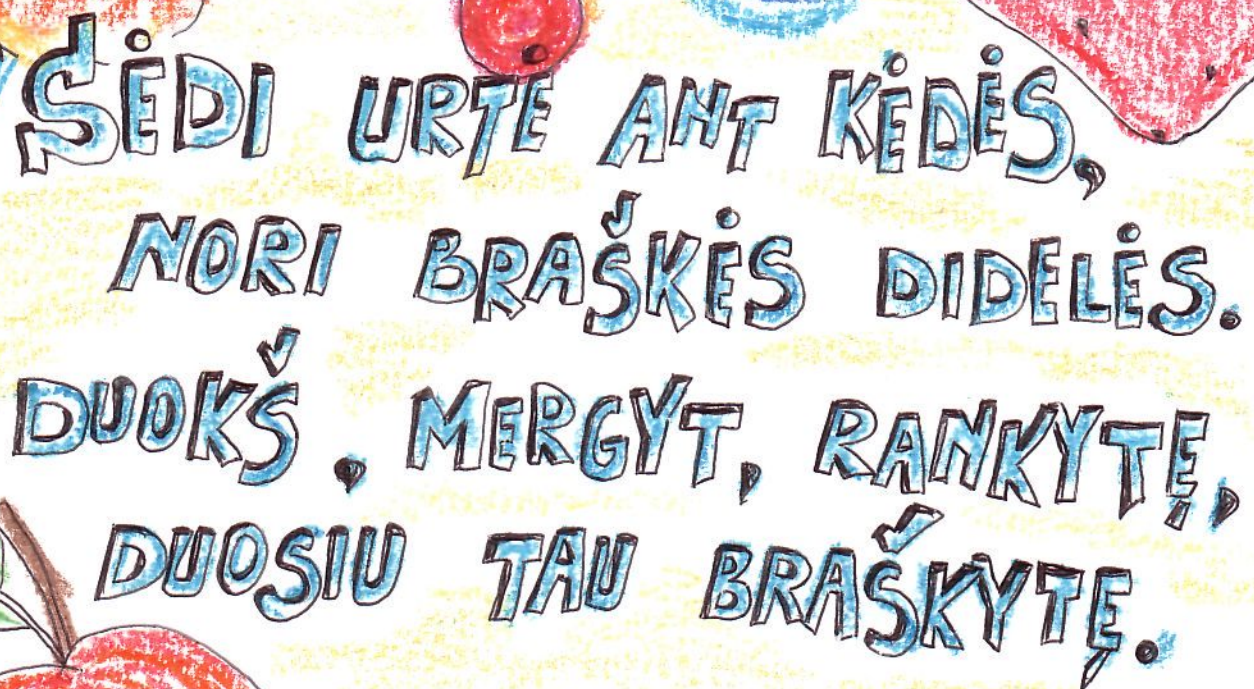 SĖDI URTĖ ANT KĖDĖS,
NORI BRAŠKĖS DIDELĖS.
DUOKŠ, MERGYT, RANKYTĘ,
DUOSIU TAU BRAŠKYTĘ.